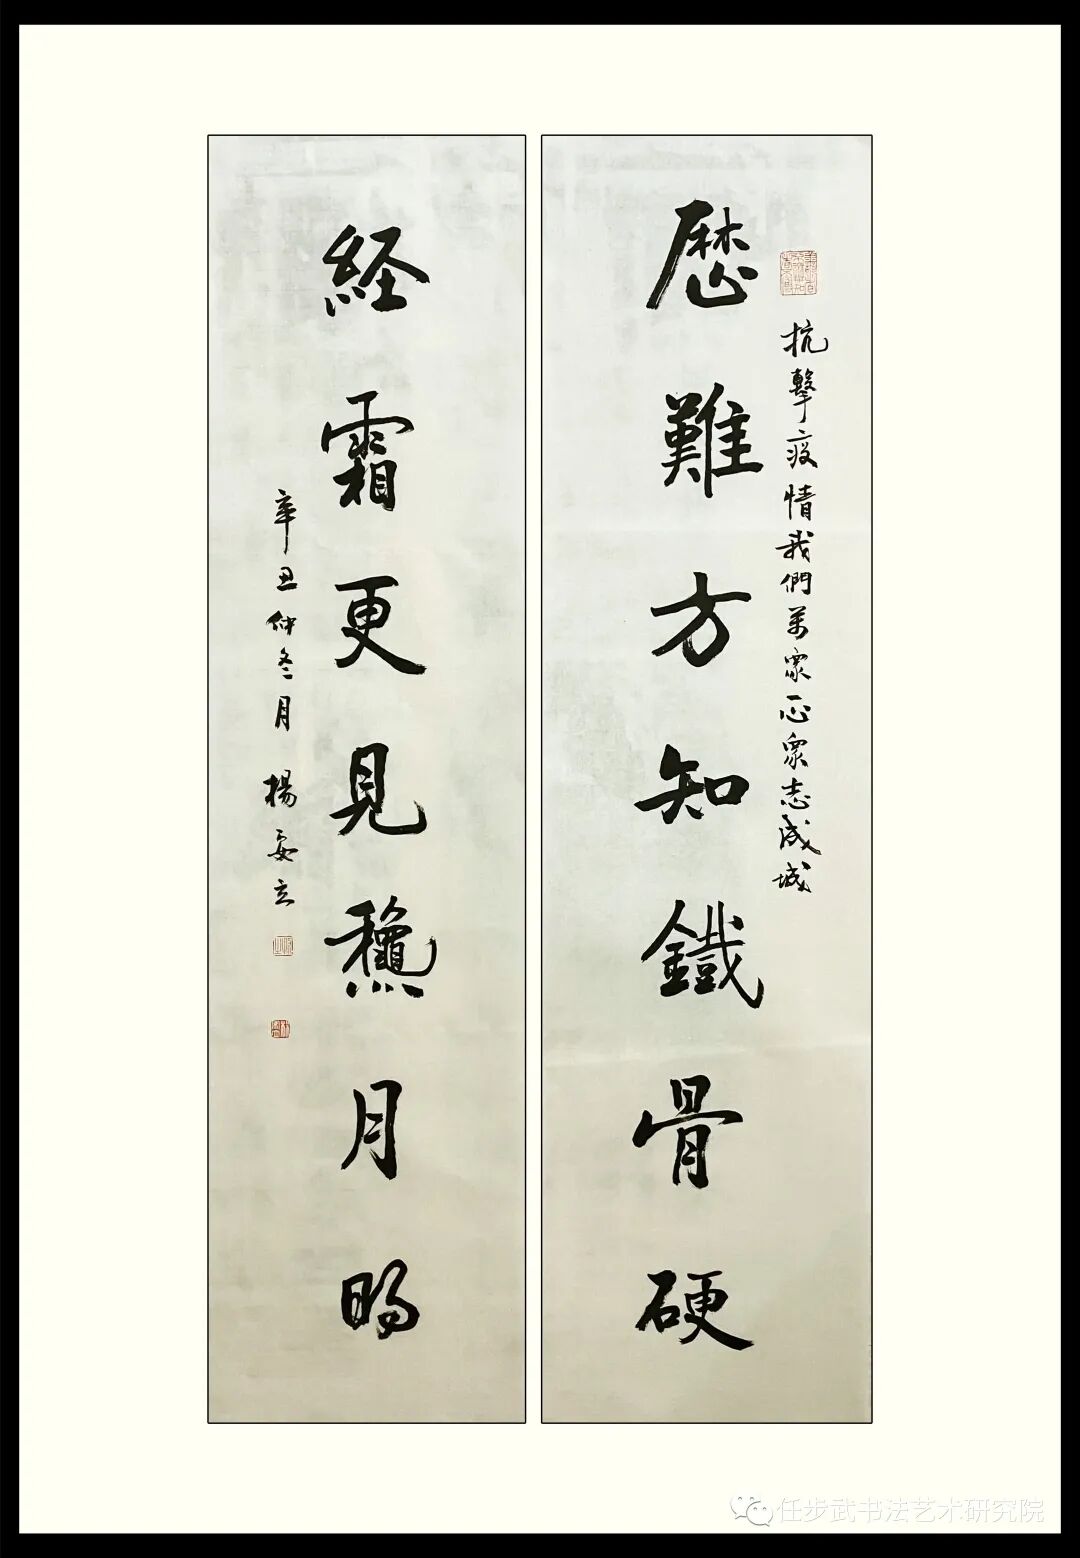 抗擊疫情我們萬眾一心眾志成城
歷難方知鐵骨硬
経霜更見穐月明
辛丑仲冬月 楊安立
任步武书法艺术研究院